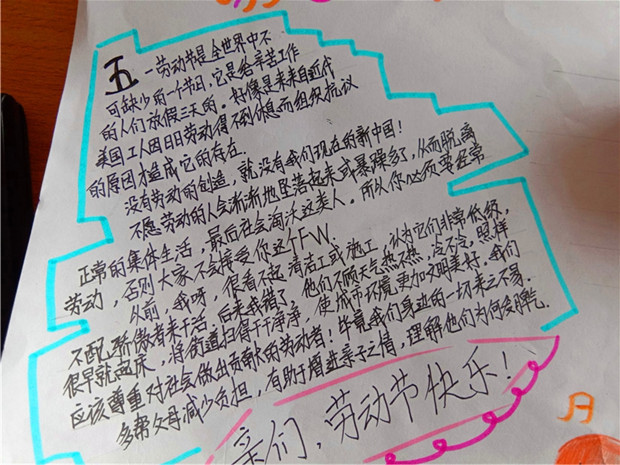 五一劳动节是全世界中不
可缺少的一个节日,它是给辛苦工作
的人们放假三天的。好像是来自近代
美国工人因日日劳动得不到休息而组织抗议
的原因才造成它的存在。
没有劳动的创造,就没有我们现在的新中国!
不愿劳动的人会渐渐地堕落起来或暴躁多了,从而脱离
正常的集体生活,最后社会淘汰这类人。所以你必须要经常
劳动,否则大家不会接受你这个FW.
从前,我呀,很看不起清洁工或施工,认为它们非常低级,
不配骄傲者来干活,后来我错了,他们不顾天气热不热,冷不冷,照样
很早就起床,将街道扫得干干净净,使城市环境更加文明美好,我们
应该尊重对社会做出贡献的劳动者!毕竟我们身边的一切来之不易.
多帮父母减少负担,有助于增进亲子之情,理解他们为何发脾气.
亲们,劳动节快乐!